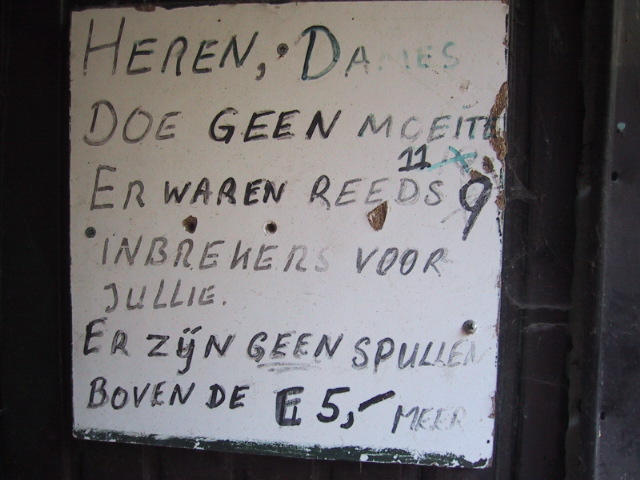 HEREN, DAMES
DOE GEEN MOEITE
11 x
ER WAREN REEDS 9
INBREKERS VOOR
JULLIE.
ER ZIJN GEEN SPULLEN
BOVEN DE € 5,- MEER